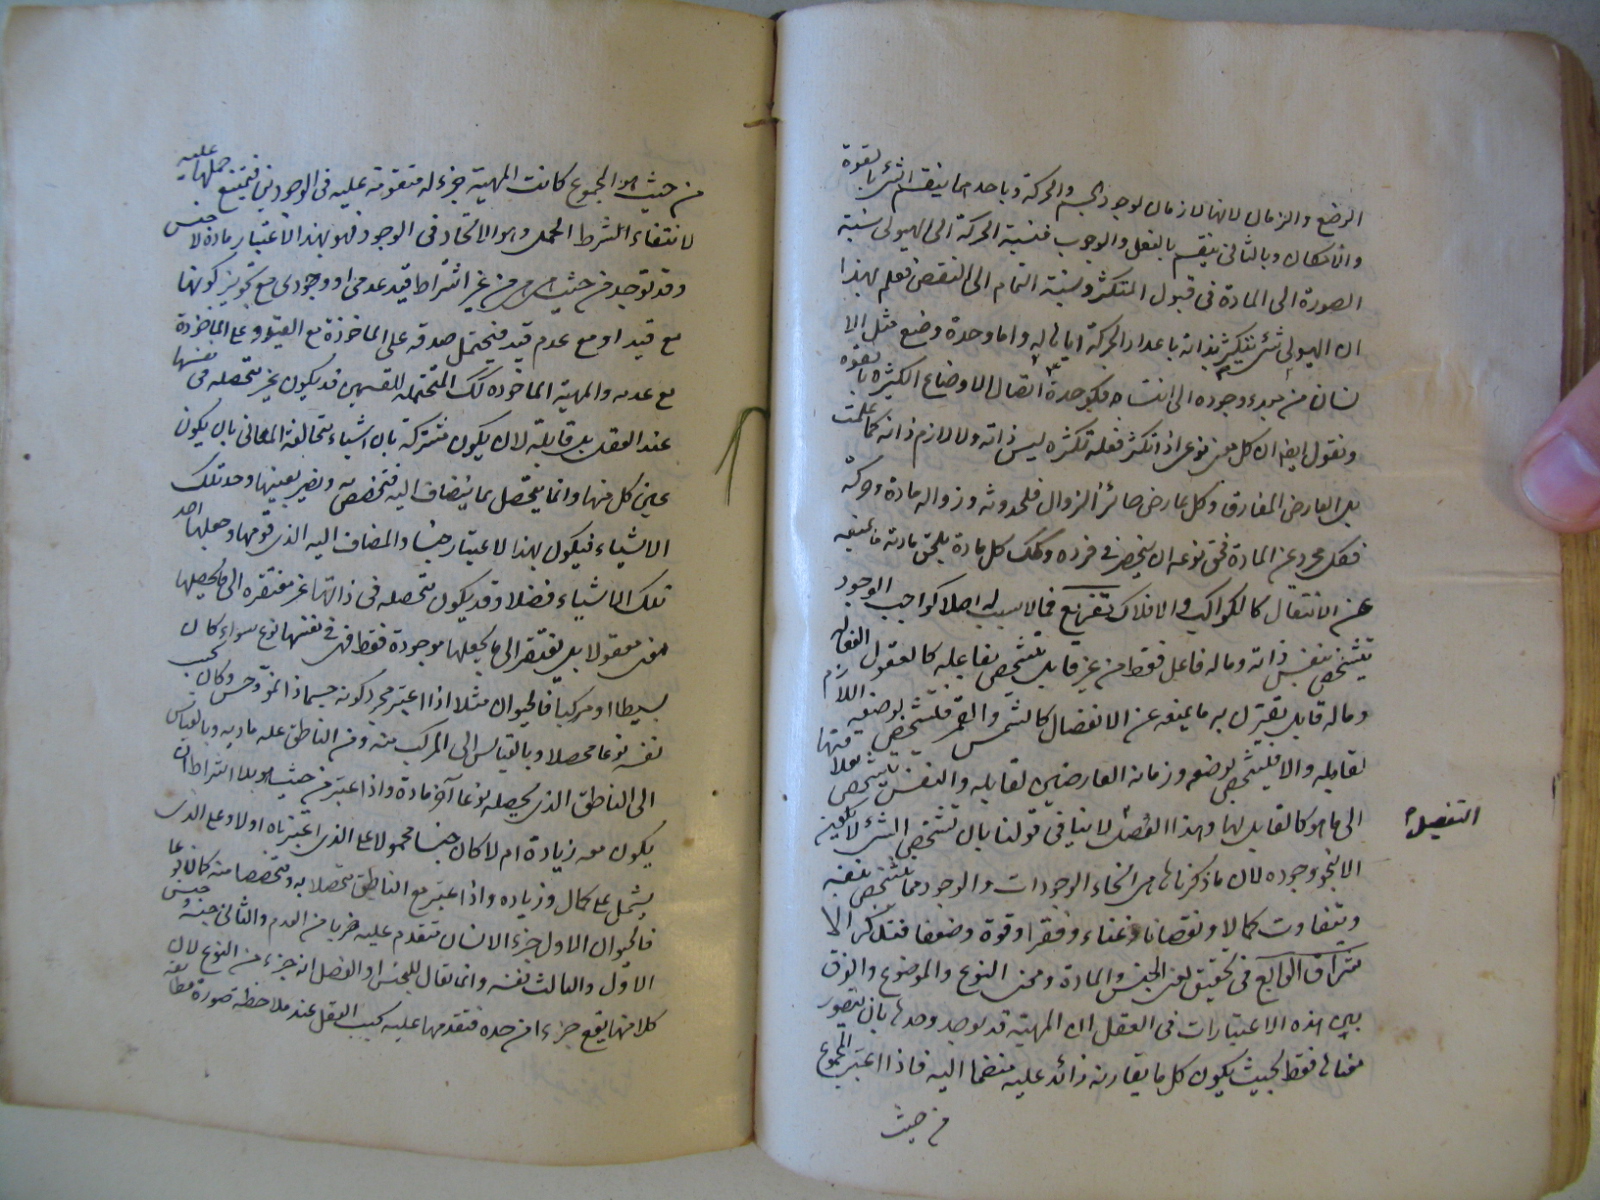 الوضع والزمان لانهما لازمان لوجود الجسم والحركة وباحدهما ينقسم الشئ بالقوة
والامكان وبالثانى ينقسم بالفعل والوجوب فنسبة الحركة الى الهيولى نسبة
الصورة الى المادة فى قبول المتكثر ونسبة التمام الى النقص فعلم بهذا
ان الهيولى شئ يتكثر بذاته باعداد الحركة اياها له واما وحدة وضع مثل الا
نسان من مبدء وجوده الى انتهاه فكوحدة اتصال الاوضاع الكثيرة بالقوة
ونقول ايضا ان كل معنى نوعى اذا تكثر فعلة تكثره ليس ذاته ولا لازم ذاته كما علمت
بل العارض المفارق وكل عارض جائز الزوال فلحدوثه وزواله مادة وحركة
فكل مجرد عن المادة فحق نوعه ان ينحصر فى فرده وكذلك كل مادة يلحق مادته ما يمنعه
عن الانتقال كالكواكب والافلاك تفريع فما لا سبب له اصلا كواجب الوجود
يتشخص بنفس ذاته وماله فاعل فقط من غير قابل يتشخص بفاعله كالعقول الفعالة
وماله قابل يقترن به ما يمنعه عن الانفصال كالشمس والقمر فلتشخص بوضعه اللازم
لقابله والا فليتشخص بوضعه وزمانه العارضين لقابله والنفس يتشخص بعلاقتها
الى ما هو كالقابل لها وهذا التفصيل لا ينافى قولنا بان تشخص الشئ لا يكون
الا بنحو وجوده لان ما ذكرناها من انحاء الوجودات والوجود مما يتشخص بنفسه
ويتفاوت كمالا ونقصانا وغناء وفقرا وقوة وضعفا فتذكر الا
شراق الرابع فى تحقيق معنى الجنس والمادة ومعنى النوع والموضوع والفرق
بين هذه الاعتبارات فى العقل ان المهية قد يوجد وحدها بان يتصور
معناها فقط بحيث يكون كل ما يقارنه زائد عليه منضما اليه فاذا اعتبر المجموع
من حيث
التفصيل
من حيث هو المجموع كانت المهية جزء له متقومة عليه فى الوجودين فيمتنع حملها عليه
لانتفاء شرط الحمل وهو الاتحاد فى الوجود فهو بهذا الاعتبار مادة لا جنس
وقد توجد من حيث هى هى من غير اشتراط قيد عدمى او وجودى مع تجويز كونها
مع قيد او مع عدم قيد فيحتمل صدقه على الماخوذة مع القيد وعلى الماخوذة
مع عدمه والمهية الماخوذه كذلك المحتملة للقسمين قد يكون غير متحصله فى نفسها
عند العقل بل قابلة لان يكون مشتركة بان اشياء متخالفة المعانى بان يكون
عين كل منها وانما يتحصل بما ينضاف اليه فتخصص به ويصير بعينها احد تلك
الاشياء فيكون بهذا الاعتبار جنسا والمضاف اليه الذى قومها وجعلها احد
تلك الاشياء فصلا وقد يكون متحصله فى ذاتها غير مفتقره الى ما يحصلها
معنى معقولا بل يفتقر الى ما يجعلها موجودة فقط فهى فى نفسها نوع سواء كان
بسيطا او مركبا فالحيوان مثلا اذا اعتبر مجرد كونه جسما ذا نمو وحس وكان بحسب
نفسه نوعا محصلا وبالقياس الى المركب منه ومن الناطق علة مادية وبالقياس
الى الناطق الذى يحصله نوعا آخر مادة واذا اعتبر من حيث هو بلا اشتراط ان
يكون معه زيادة ام لا كان جنسا محمولا على الذى اعتبرناه اولا وعلى الذى
يشمل على كمال وزياده واذا اعتبر مع الناطق متحصلا به ومتخصصا منه كان نوعا
فالحيوان الاول جزء الانسان متقدم عليه ضربا من التقدم والثانى جنسه وجنس
الاول والثالث نفسه وانما يقال للجنس او الفصل انه جزء من النوع لان
كلا منهما يقع جزءا من حده فتقدمهما عليه بحسب العقل عند ملاحظة صورة مطابقه